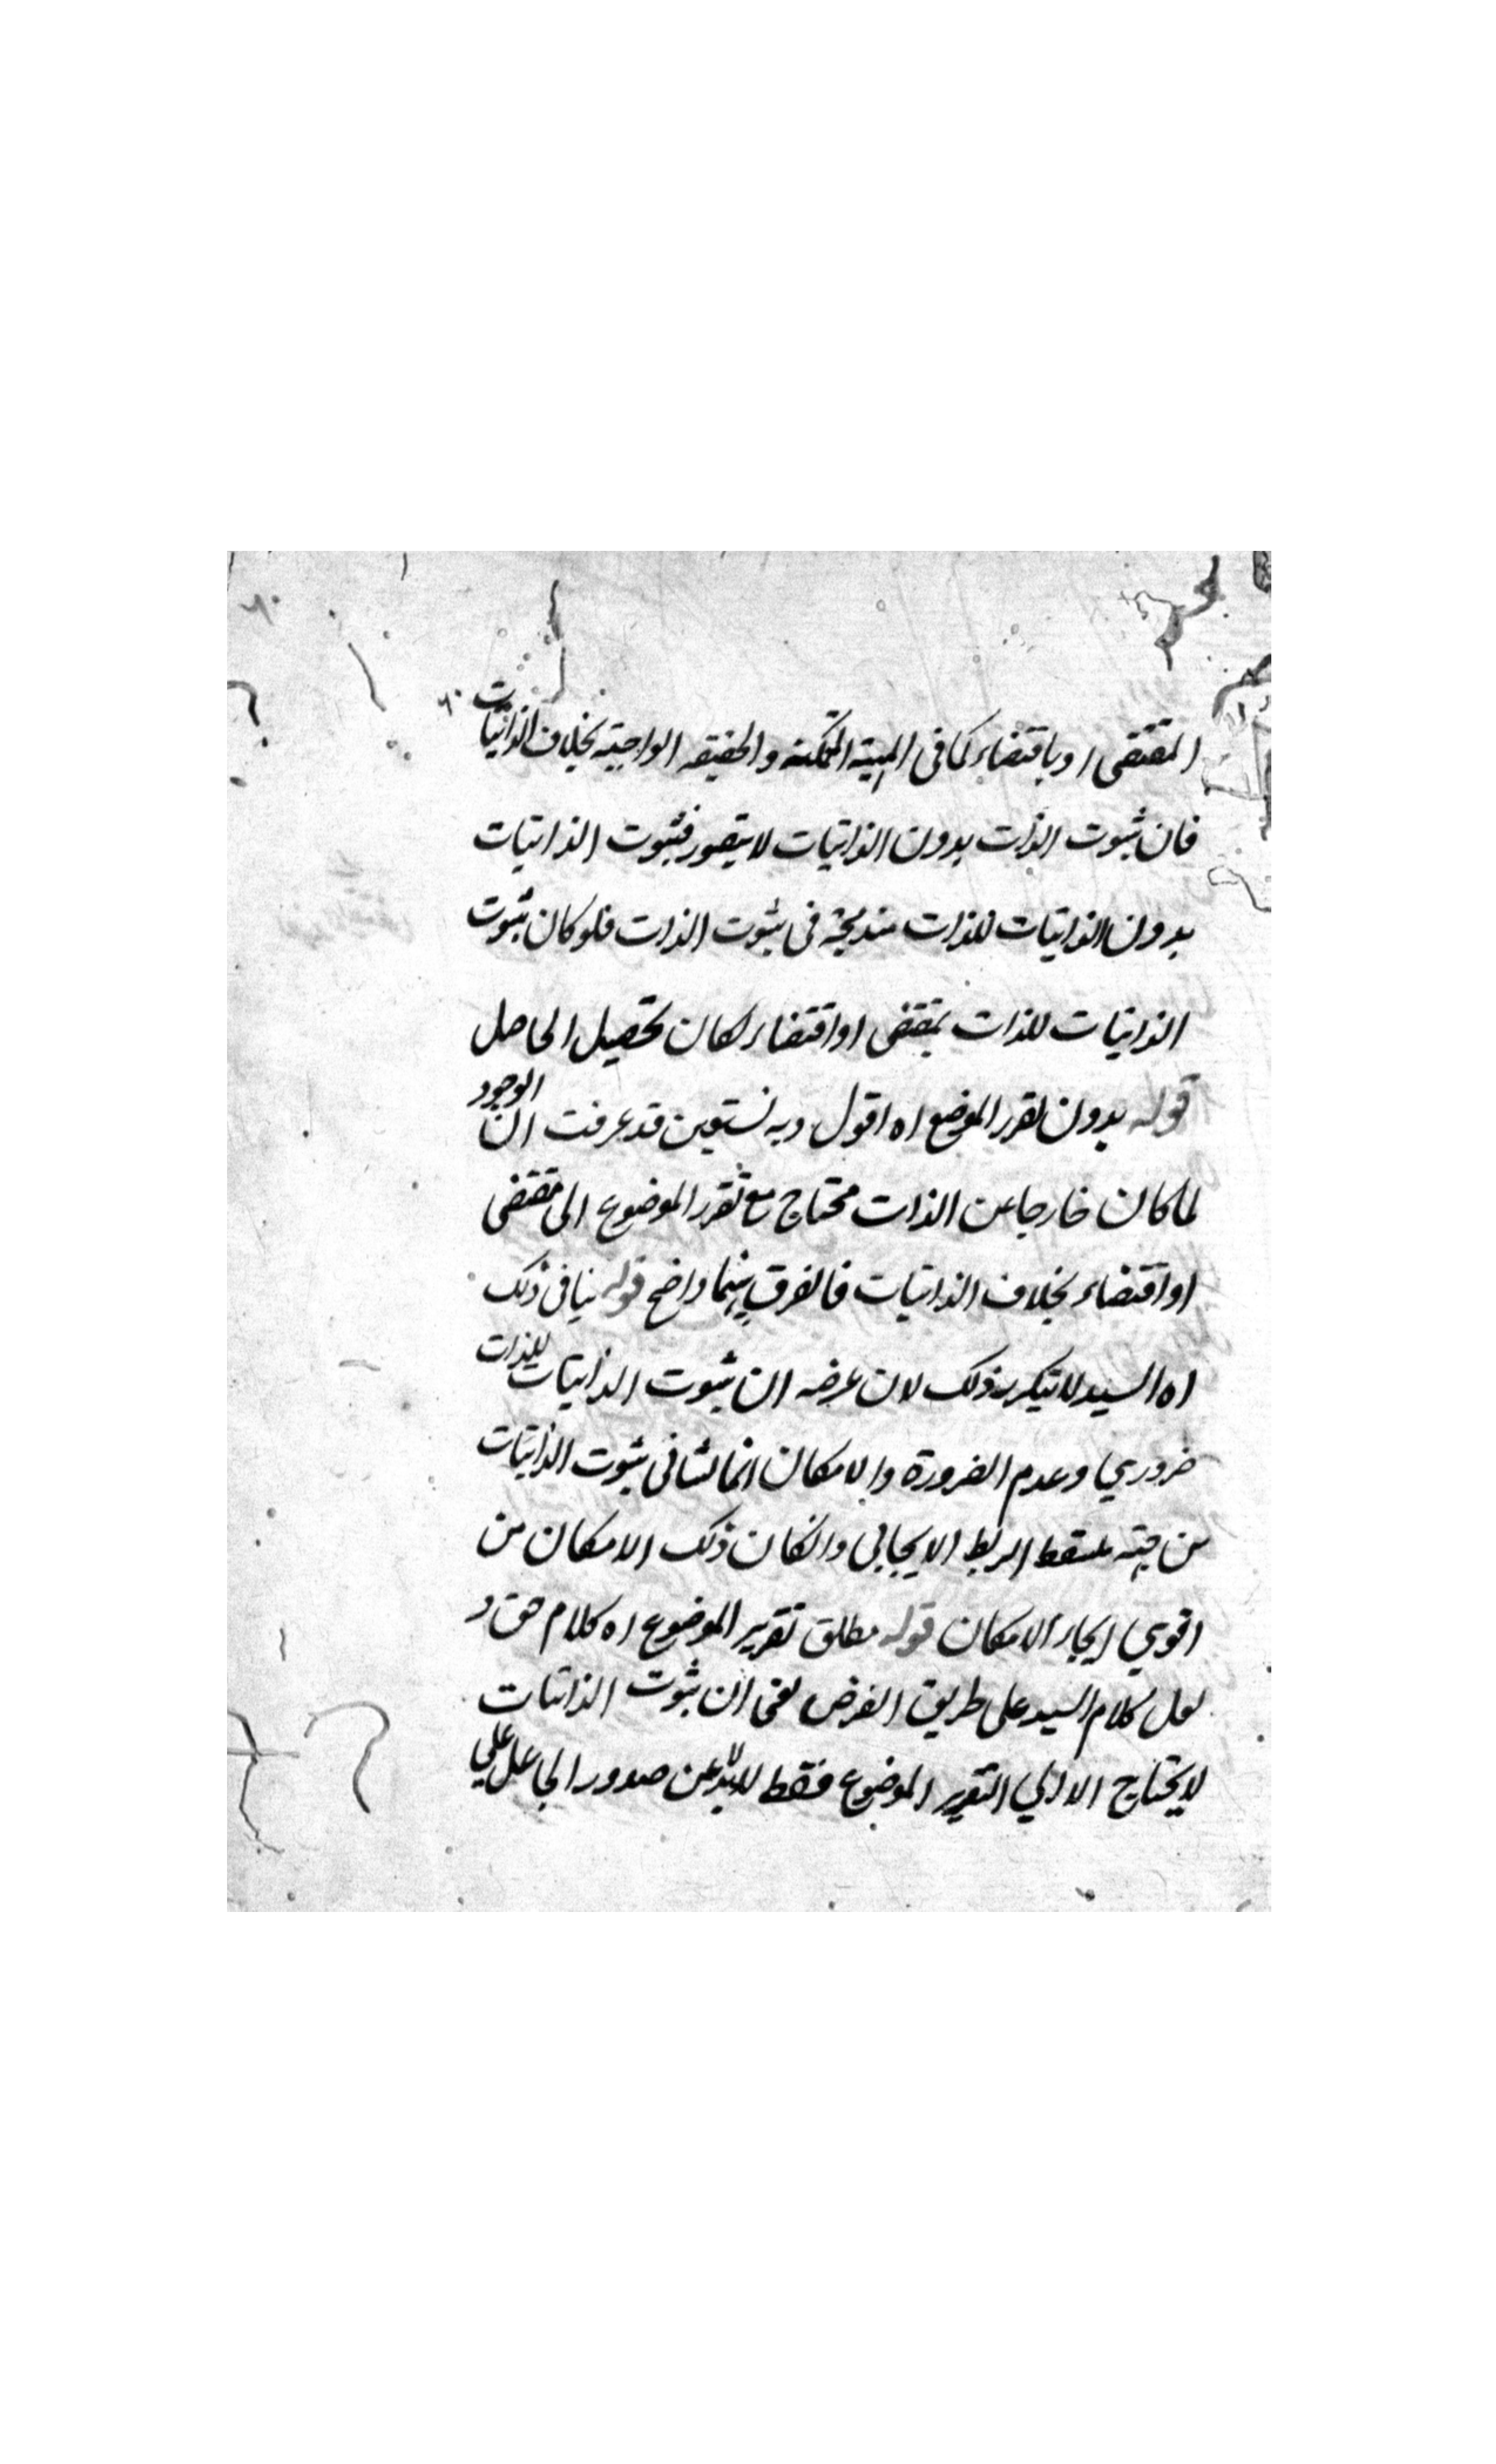 المقتضى او باقتضاء كما فى المهية الممكنة والحقيقه الواجبية بخلاف الذاتيات
فان ثبوت الذات بدون الذاتيات لا يتصور فثبوت الذاتيات
بدون الذاتيات للذات مندمجة فى ثبوت الذات فلو كان ثبوت
الذاتيات للذات بمقتضى او اقتضاء لكان تحصيل الحاصل
قوله بدون تقرر الموضع اه اقول وبه نستعين قد عرفت ان الوجود
لما كان خارجا عن الذات محتاج مع تقرر الموضوع الى مقتضى
او اقتضاء بخلاف الذاتيات فالفرق بينهما واضح قوله ينافى ذلك
اه السيد لا ينكر ذلك لان غرضه ان ثبوت الذاتيات للذات
ضروري وعدم الضرورة والامكان انما نشا فى ثبوت الذاتيات
من جهة الربط الايجابى وانكان ذلك الامكان من
اقوي الامكان قوله مطلق تقرير الموضوع اه كلام حق و
لعل كلام السيد على طريق الفرض يعنى ان ثبوت الذاتيات
لا يحتاج الا الي التقرير الموضوع فقط عن صدور الجاعل علي